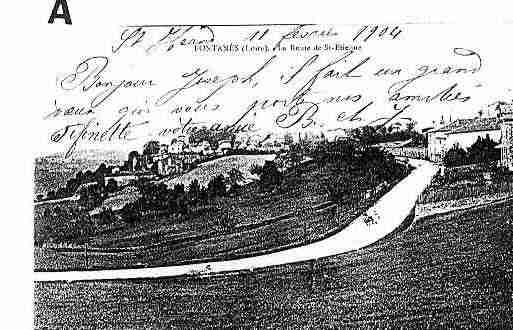 A
St Héand 11 février 1904
FONTANÈS (Loire). - La Route de St-Etienne
Bonjour Joseph, il fait un grand
vous porte nos amitiés
votre amie B. et J